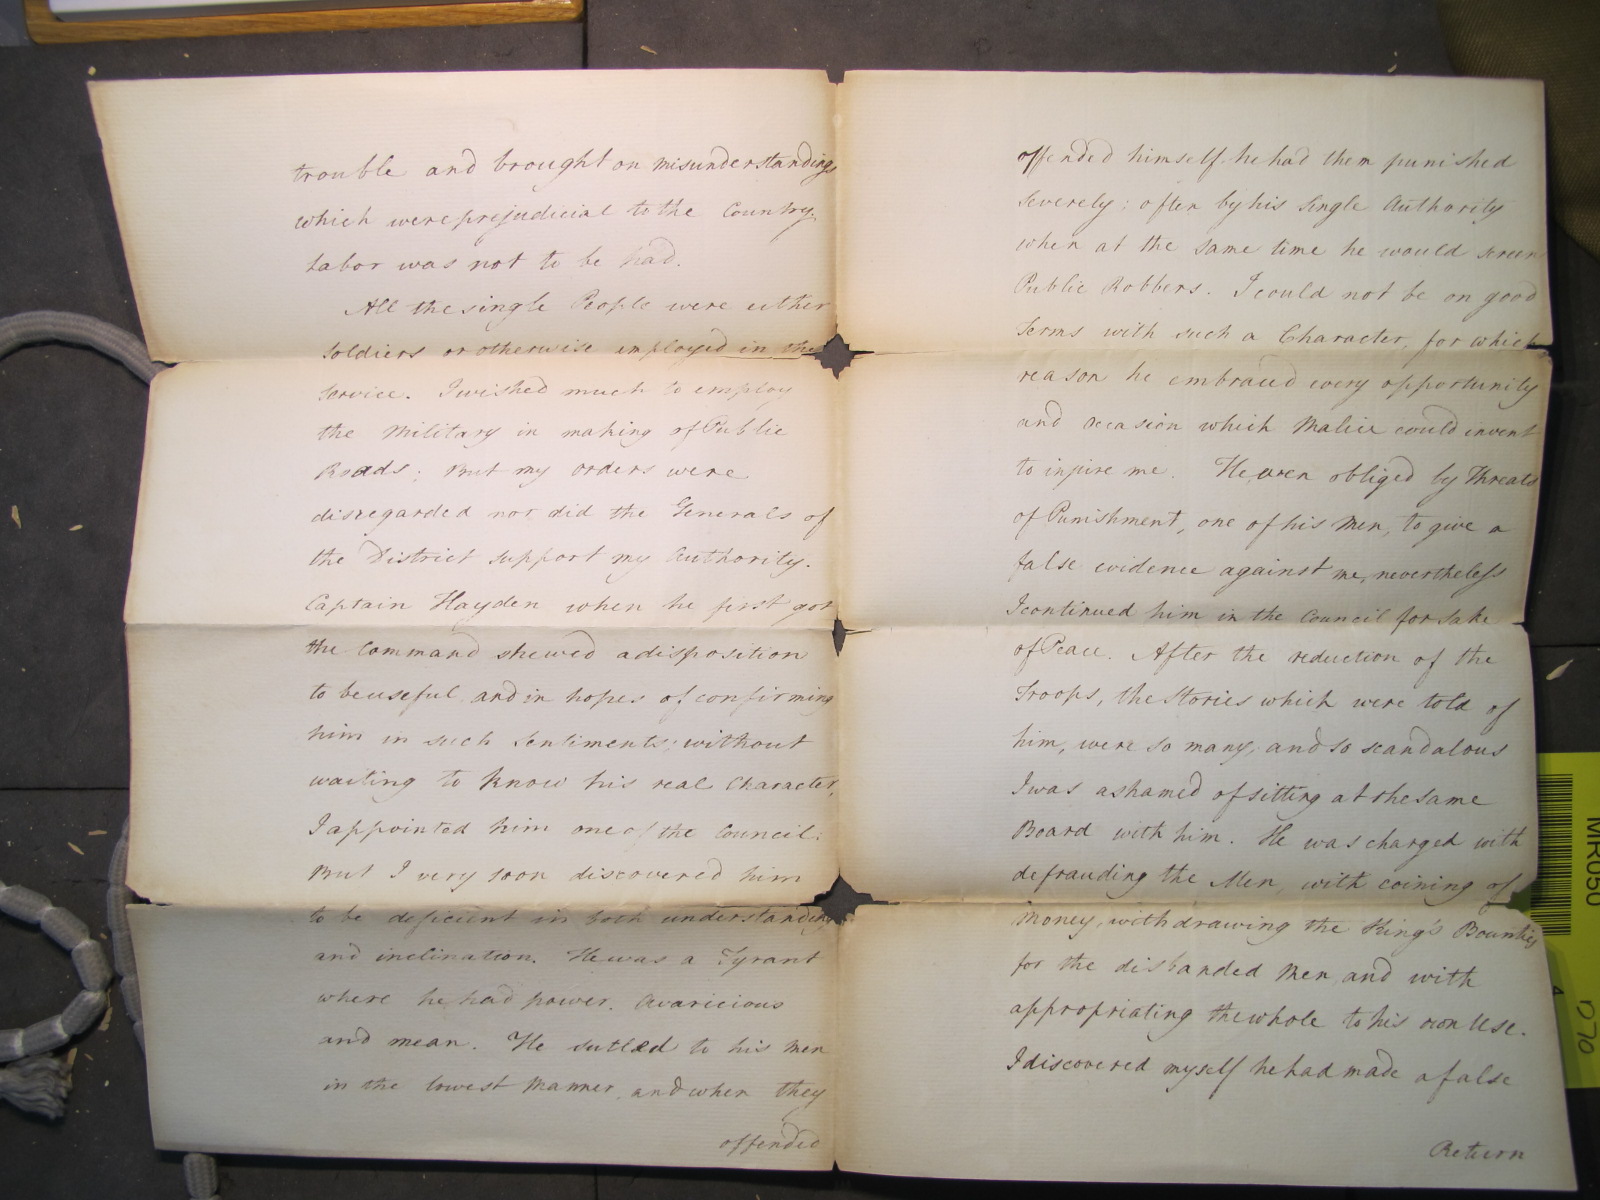 trouble and brought on misunderstandings
which were prejudicial to the Country.
Labor was not to be had.
All the single People were either
Soldiers or otherwise employed in the
Service. I wished much to employ
the Military in making of Public
Roads; But my orders were
disregarded nor did the Generals of
the District support my Authority.
Captain Hayden when he first got
the Command shewed a disposition
to be useful and in hopes of confirming
him in such Sentiments; without
waiting to know his real Character,
I appointed him one of the Council:
But I very soon discovered him
to be deficient in both understanding
and inclination. He was a Tyrant
where he had power. Avaricious
and mean. He sutled to his Men
in the lowest Manner, and when they
offended
offended himself he had them punished
Severely; often by his Single Authority
when at the Same time he would screen
Public Robbers. I could not be on good
Terms with such a Character, for which
reason he embraced every opportunity
and occasion which Malice could invent
to injure me. He even obliged by Threats
of Punishment, one of his Men, to give a
false evidence against me, nevertheless
I continued him in the Council for Sake
of Peace. After the reduction of the
Troops, the Stories which were told of
him, were so many, and so scandalous
I was ashamed of sitting at the same
Board with him. He was charged with
defrauding the Men, with coining of
Money, with drawing the King's Bounties
for the disbanded Men and with
appropriating the whole to his own Use.
I discovered myself he had made a false
Return
MR050
4